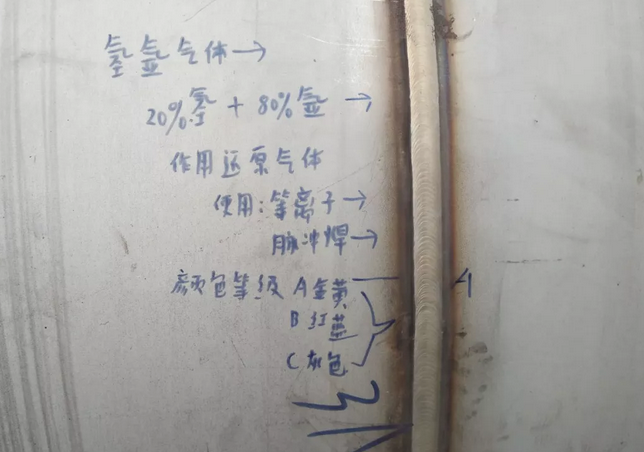 氢氩气体→
20%氢 + 80%氩 →
作用还原气体
使用:等离子→
脉冲焊→
颜色等级 A金黄
B 红蓝
C 灰色
A